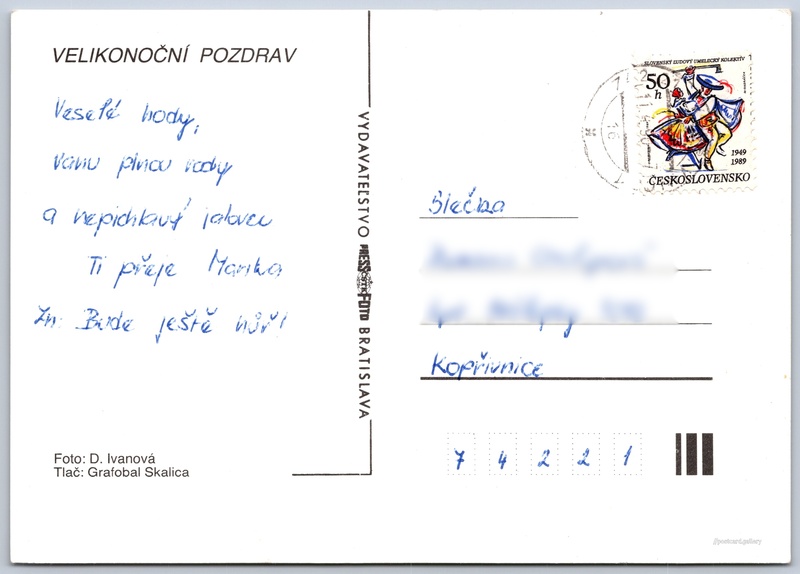 VELIKONOČNÍ POZDRAV
Veselé hody,
vanu plnou vody
a nepichlavý jalovec
Ti přeje Marika
Zn: Bude ještě hůř!
Foto: D. Ivanová
Tlač: Grafobal Skalica
VYDAVATEĽSTVO PRESSFOTO BRATISLAVA
ČSTK
SLOVENSKÝ ĽUDOVÝ UMELECKÝ KOLEKTÍV
50
h
1949
1989
ČESKOSLOVENSKO
Slečna
Kopřivnice
7 4 2 2 1
postcard.gallery